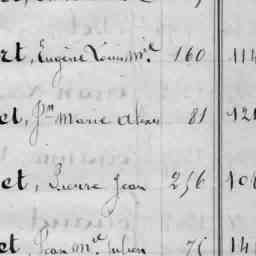 rt, Eugène Louis Mie 160 114
et, Jn Marie Alexis 81 121
et, Pierre Jean 256 108
et, Jean Mie Julien 75 141